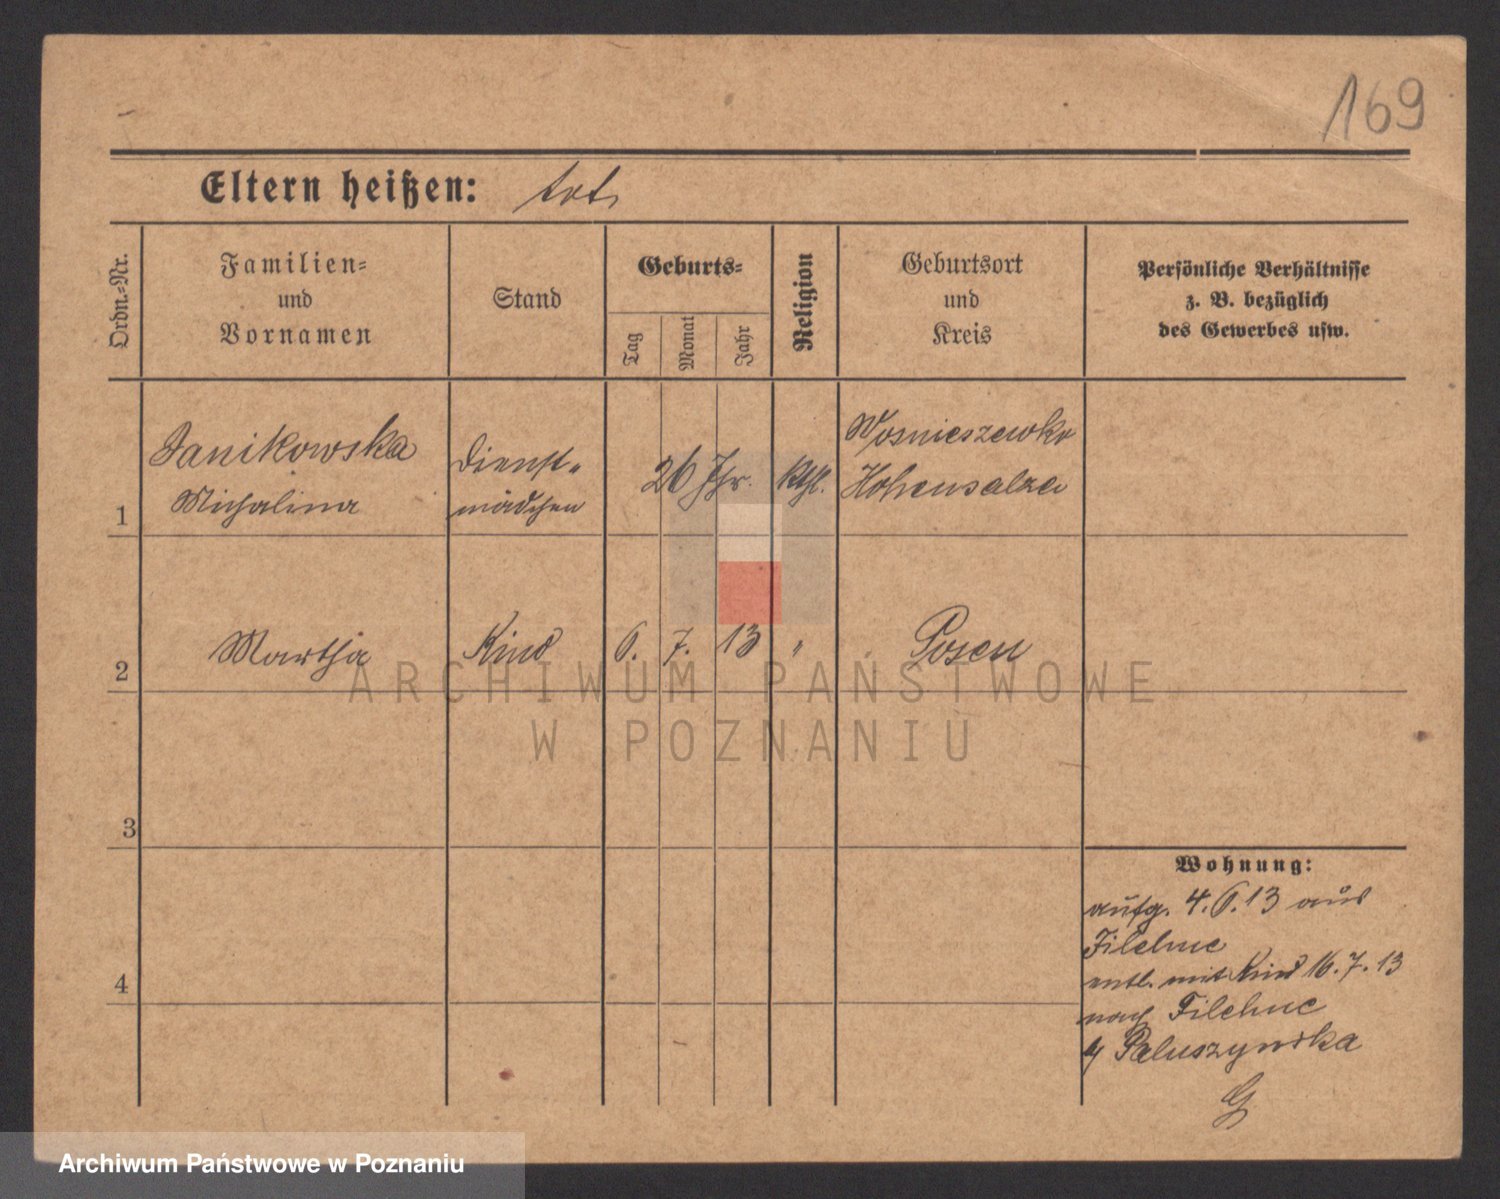 169
Eltern heißen: tot,
Ordn.-Nr.
Familien-
und
Vornamen
Stand
Geburts-
Tag
Monat
Jahr
Religion
Geburtsort
und
Kreis
Persönliche Verhältnisse
z. B. bezüglich
des Gewerbes usw.
1
Janikowska
Michalina
Dienst-
mädchen
26 Jhr.
kthl.
Wosnieszewko
Hohensalza
2
Martha
Kind
6. 7. 13
"
Posen
3
4
Wohnung:
aufg. 4.6.13 aus
Filehne
entl. mit Kind 16.7.13
nach Filehne
Paluszynska
G
ARCHIWUM PAŃSTWOWE
W POZNANIU
Archiwum Państwowe w Poznaniu